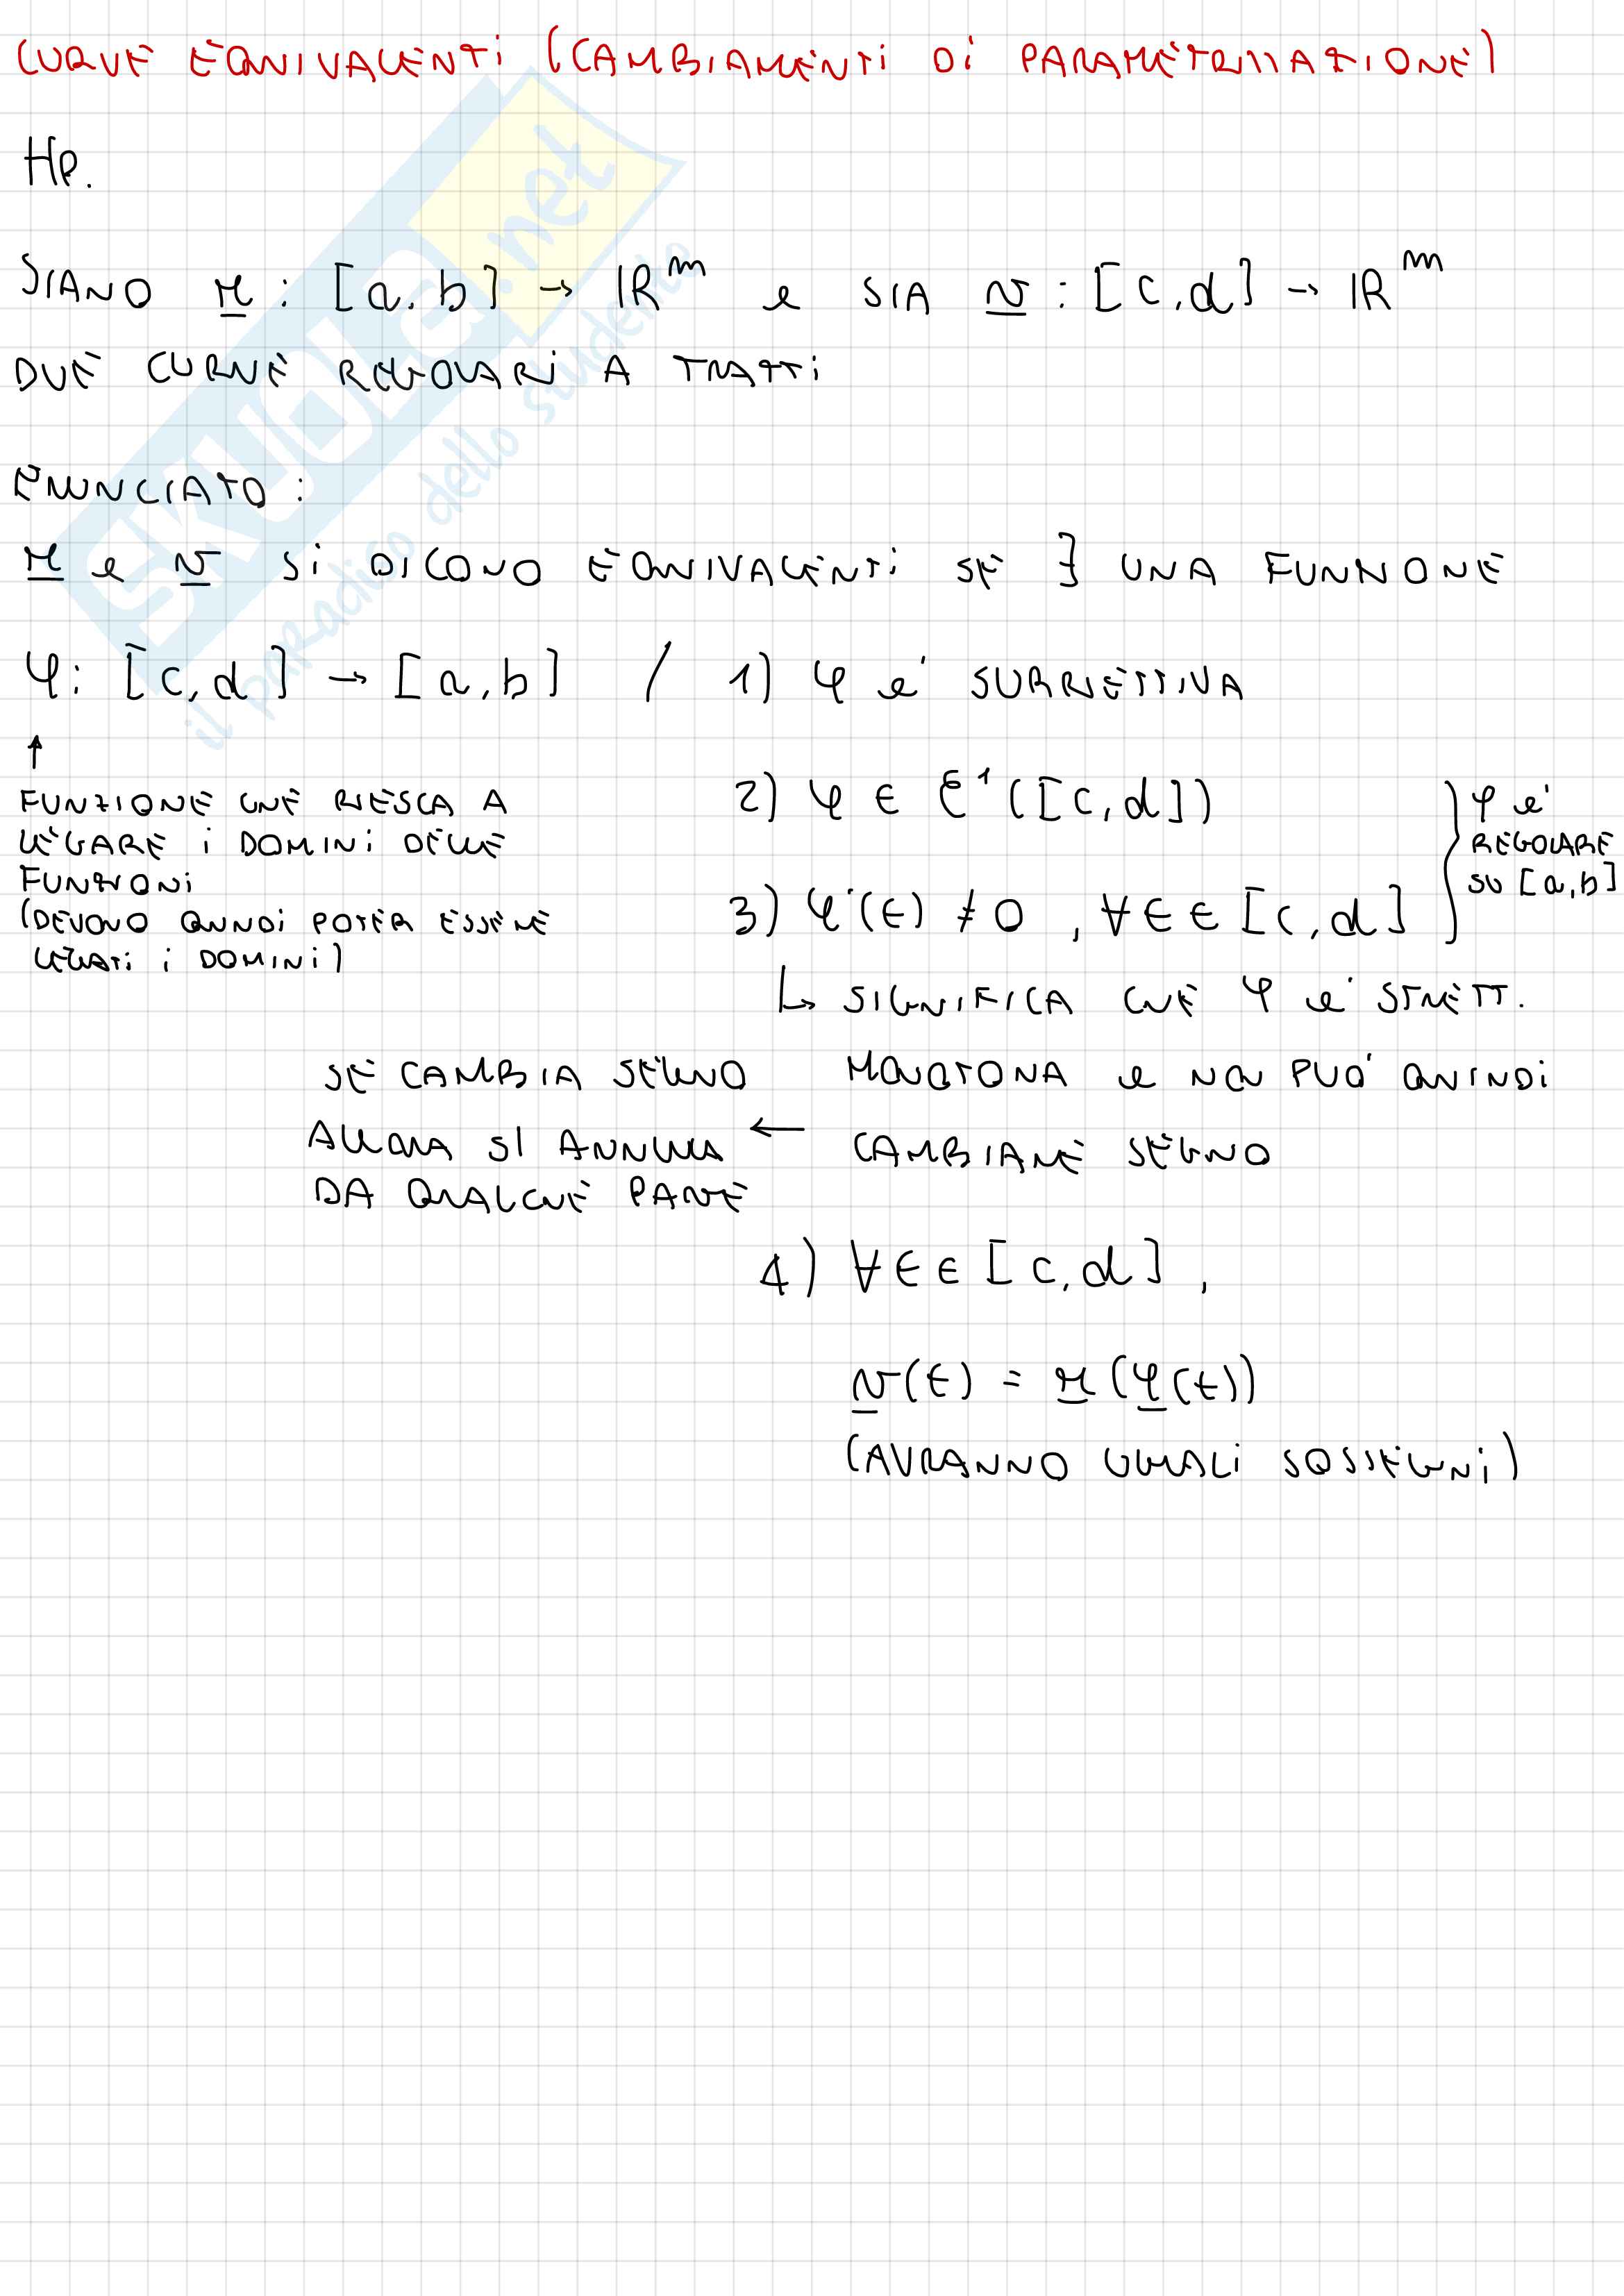 CURVE EQUIVALENTI (CAMBIAMENTI DI PARAMETRIZZAZIONE)
Hp.
SIANO r : [a, b] → ℝᵐ e SIA v : [c, d] → ℝᵐ
DUE CURVE REGOLARI A TRATTI
ENUNCIATO :
r e v SI DICONO EQUIVALENTI SE ∃ UNA FUNZIONE
φ : [c, d] → [a, b] / 1) φ e' SURRIETTIVA
↑
FUNZIONE CHE RIESCA A
LEGARE I DOMINI DELLE
FUNZIONI
(DEVONO QUINDI POTER ESSERE
LEGATI I DOMINI)
2) φ ∈ C¹([c, d])
3) φ'(t) ≠ 0 , ∀t ∈ [c, d]
φ e'
REGOLARE
SU [a, b]
↳ SIGNIFICA CHE φ e' STRETT.
MONOTONA e NON PUO' QUINDI
CAMBIARE SEGNO
← SE CAMBIA SEGNO
ALLORA SI ANNULLA
DA QUALCHE PARTE
4) ∀t ∈ [c, d] ,
v(t) = r(φ(t))
(AVRANNO UGUALI SOSTEGNI)
SKUOLA.net
il paradiso dello studente